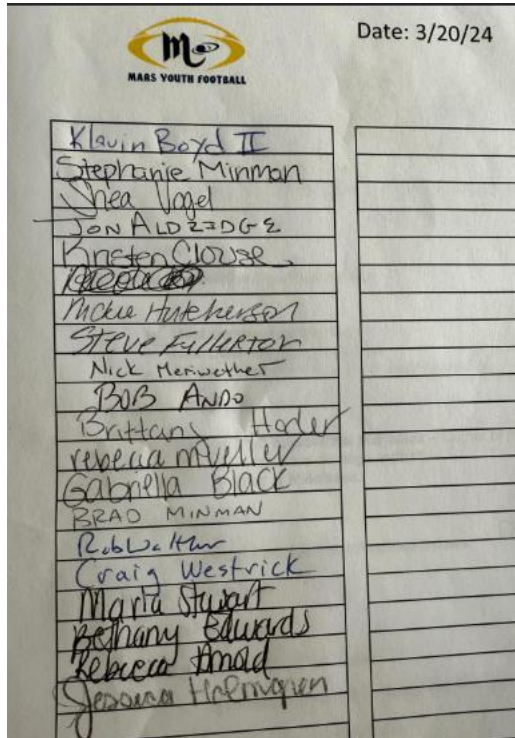 Date: 3/20/24
M
MARS YOUTH FOOTBALL
Klavin Boyd II
Stephanie Minman
Shea Vogel
JON ALDREDGE
Kristen Clouse
Nickie Hutcherson
Steve Fullerton
Nick Meriwether
BOB ANDO
Brittany Hoder
rebecca mueller
Gabriella Black
BRAD MINMAN
Rob Walther
Craig Westrick
Maria Stewart
Bethany Edwards
Rebecca Arnold
Jessica Holmquen